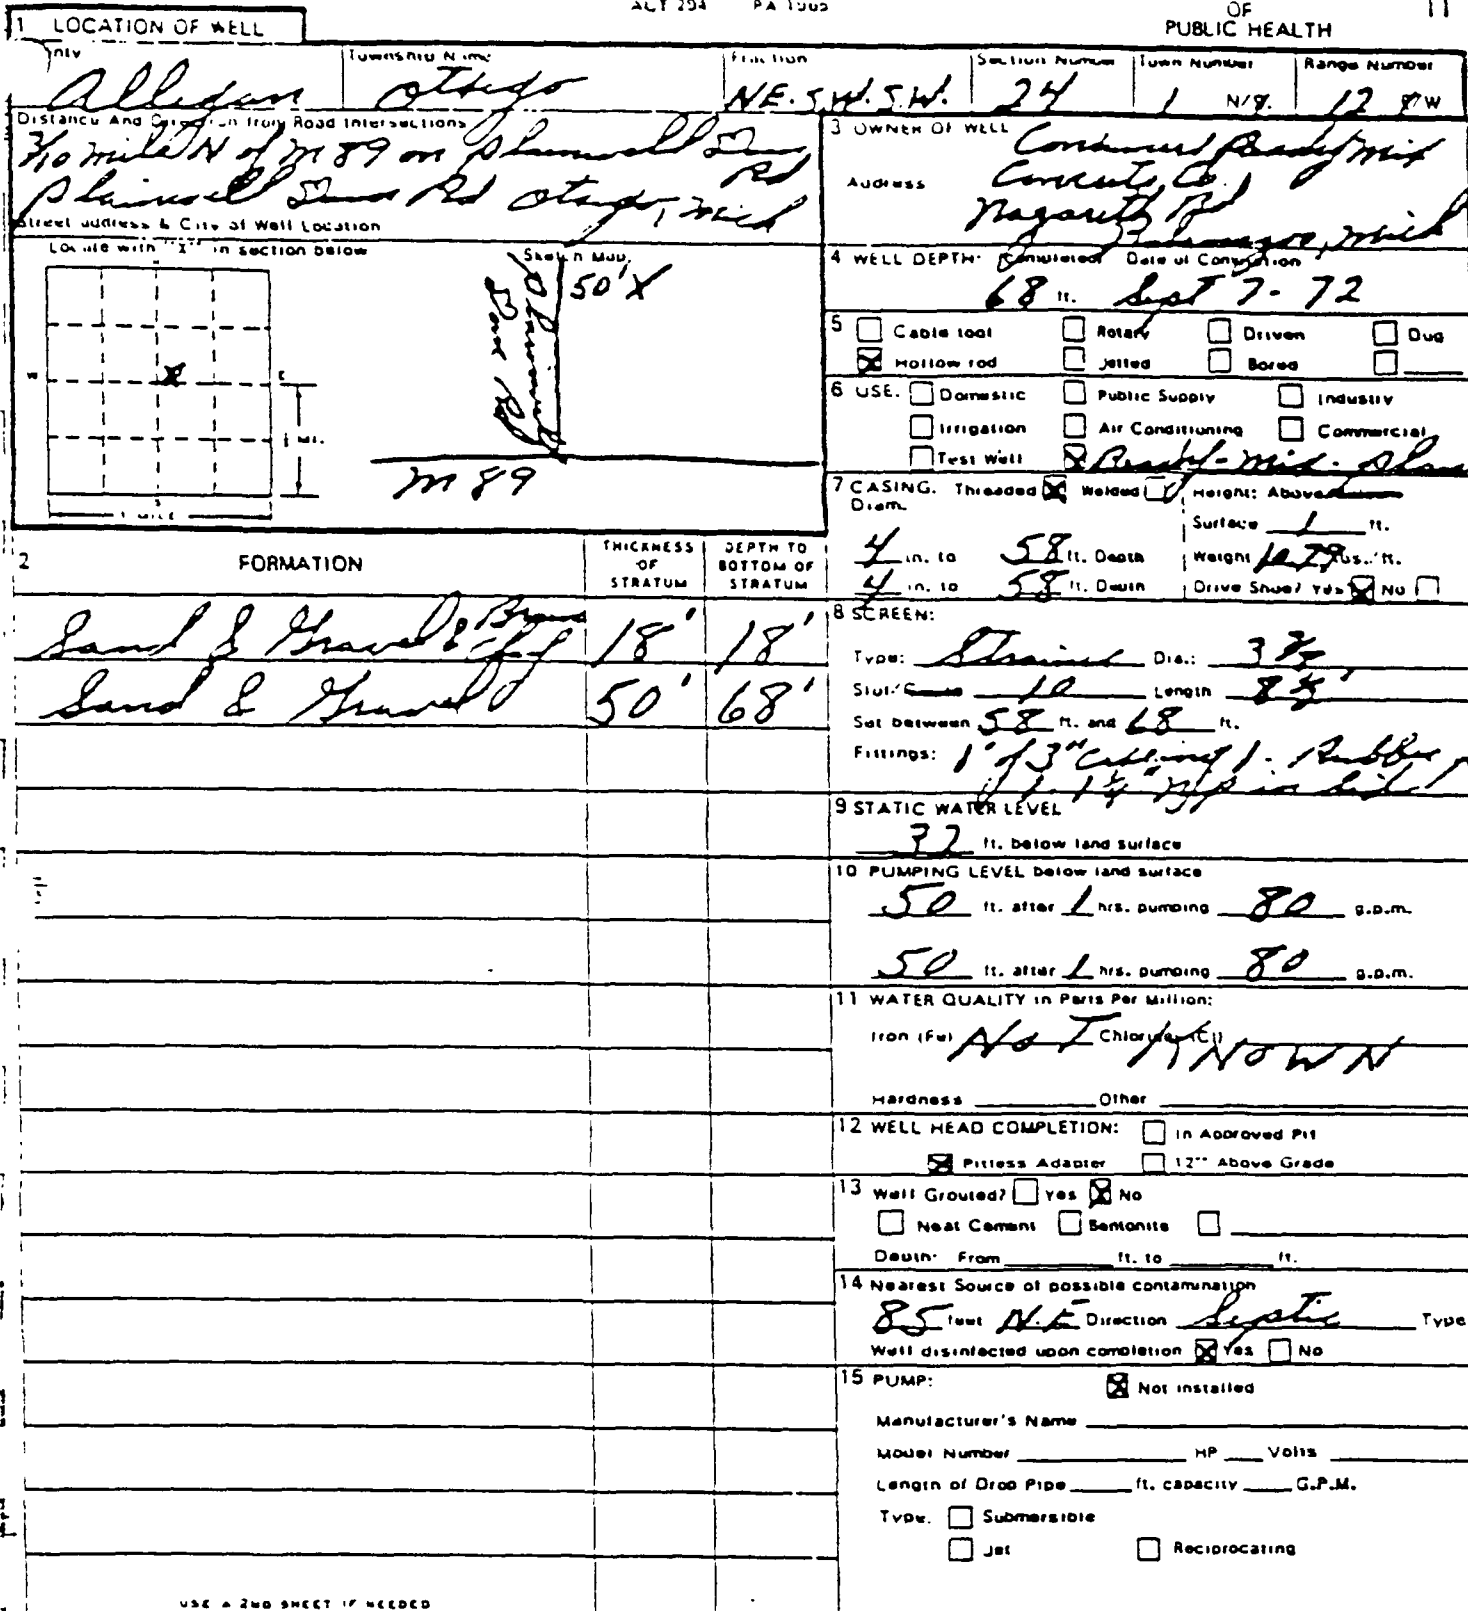 ACT 294 PA 1965
OF
PUBLIC HEALTH
11
1 LOCATION OF WELL
Township Name
Fraction
Section Number
Town Number
Range Number
Allegan
Otsego
NE. SW. SW.
24
1 N/S.
12 E/W
Distance And Direction from Road Intersections
3/10 mile N of M 89 on Plainwell Dam
Rd
Plainwell Dam Rd Otsego, Mich
Street address & City of Well Location
Locate with "X" in section below
Sketch Map.
W
E
X
½ MI.
S
1 MILE
50' X
Plainwell
Dam Rd
M 89
3 OWNER OF WELL
Consumers Ready Mix
Address
Concrete Co.
Nazareth Rd
Kalamazoo, Mich
4 WELL DEPTH: (completed) Date of Completion
68 ft. Sept 7-72
5 Cable tool Rotary Driven Dug
Hollow rod Jetted Bored
6 USE: Domestic Public Supply Industry
Irrigation Air Conditioning Commercial
Test Well Ready-Mix-Plan
7 CASING: Threaded Welded Height: Above
Diam.
Surface 1 ft.
4 in. to 58 ft. Depth Weight 10.79 lbs./ft.
4 in. to 58 ft. Depth Drive Shoe? Yes No
2 FORMATION
THICKNESS OF STRATUM
DEPTH TO BOTTOM OF STRATUM
Sand & Gravel & Brown
18' 18'
Sand & Gravel 50' 68'
8 SCREEN:
Type: Strainer Dia.: 3
Slot/ 10 Length 8
Set between 58 ft. and 68 ft.
Fittings: 1' of 3" 1- Rubber
1- 1¼" in
9 STATIC WATER LEVEL
32 ft. below land surface
10 PUMPING LEVEL below land surface
50 ft. after 1 hrs. pumping 80 g.p.m.
50 ft. after 1 hrs. pumping 80 g.p.m.
11 WATER QUALITY in Parts Per Million:
Iron (Fe) Chlorides (Cl)
NOT KNOWN
Hardness Other
12 WELL HEAD COMPLETION: In Approved Pit
Pitless Adapter 12" Above Grade
13 Well Grouted? Yes No
Neat Cement Bentonite
Depth: From ft. to ft.
14 Nearest Source of possible contamination
85 feet N.E Direction Septic Type
Well disinfected upon completion Yes No
15 PUMP: Not installed
Manufacturer's Name
Model Number HP Volts
Length of Drop Pipe ft. capacity G.P.M.
Type: Submersible
Jet Reciprocating
USE A 2ND SHEET IF NEEDED